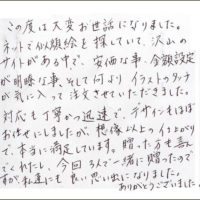 この度は大変お世話になりました。
ネットで似顔絵を探していて、沢山の
サイトがある中で、安価な事、金額設定
が明瞭な事、そして何よりイラストのタッチ
が気に入って注文させていただきました。
対応も丁寧かつ迅速で、デザインもほぼ
お任せにしましたが、想像以上の仕上がり
で、本当に満足しています。贈った方も喜ん
でくれたし、今回3人で一緒に贈ったので
すが私達にも良い思い出になりました。
ありがとうございました。